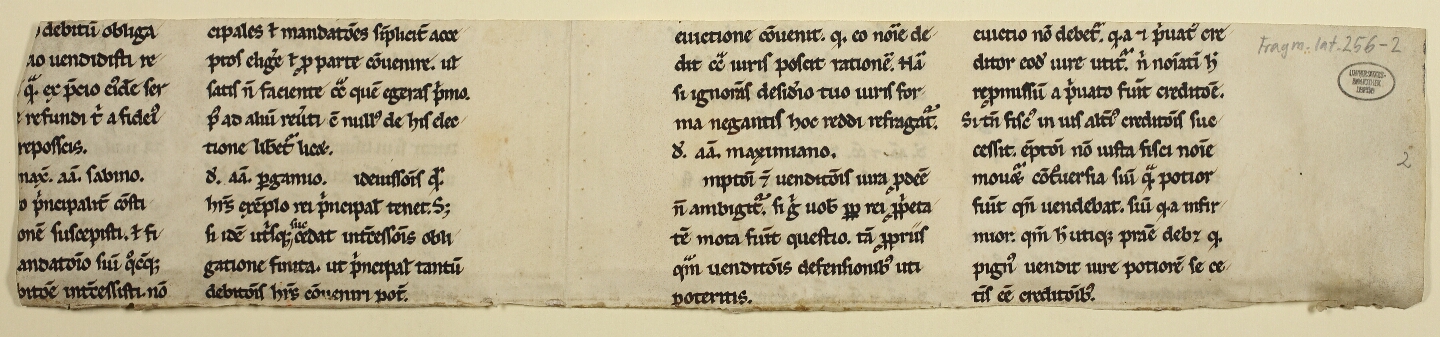 debitū obliga
uendidisti re
q̄. ex p̄cio eidē ser
refundi t̄ a fideī
reposcis.
max̄. aā. sabino.
p̄ncipalit̄ cōsti
onē suscepisti. ł fi
andatoꝛio siū q̊cūq;
bitoꝛē int̄cessisti nō
cipales ł mandatoꝛes sīplicit̄ acce
ptos eliḡe ł ꝓ parte cōuenire. uł
satis n̄ faciente eē quē egeras p̄mo.
p̄ ad aliū reuti ē nullꝰ de his elec
tione lib̄et̄ licꝫ.
d̄. aā. ꝑgamio. ideiussoꝛis q̄.
hr̄s exēplo rei p̄ncipał tenet̄. Sꝫ
si idē ut̄sq; sucedat int̄cessoꝛis obli
gatione finita. ut p̄ncipał tantū
debitoꝛis hr̄s cōueniri pot̄.
euictione cōuenit. q. eo noīe de
dit eē iuris poscit rationē. Nā
si ignoꝛās desid̄io tuo iuris foꝛ
ma negantis hoc reddi refragat̄.
d̄. aā. maximiano.
mptoꝛi ⁊ uenditoꝛis iura pdēē
n̄ ambigit̄. si g̊ uob̄ ꝓp̄ rei ꝓp̄eta
tē mota fuīt questio. tā ꝓpriis
qm̄ uenditoꝛis defensionibꝰ uti
poteritis.
euictio nō debet̄. q.a ⁊ p̄uat̄ cre
ditoꝛ eod̄ iure utit̄. n̄ noīati h̄
repmissū a p̄uato fuīt creditoꝛe.
Si tn̄ fiscꝰ in ius altīꝰ creditoꝛis sue
cessit. ēptoꝛi nō iusta fisci noīe
mouet̄ cōt̄uersia siū q̄ potioꝛ
fuīt qn̄ uendebat. siū q.a infir
mioꝛ. qm̄ h̄ utiq; praē debꝫ q.
pignꝰ uendit iure potioꝛē se ce
tīs eē creditoꝛibꝰ.
Fragm. lat. 256-2
2